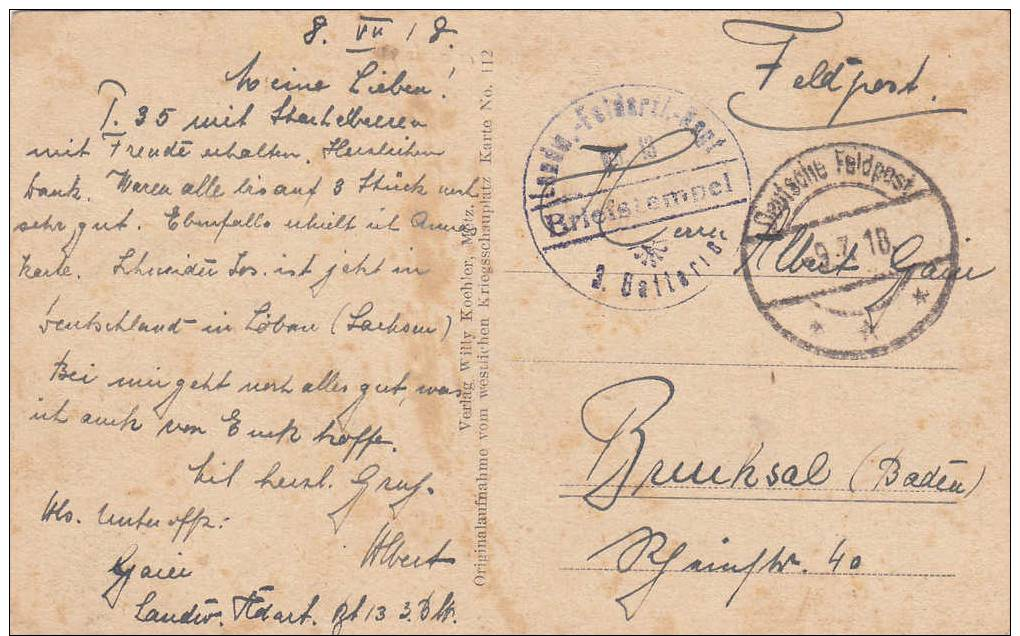 8. VII 18.
Meine Lieben!
P. 35 mit Stachelbeeren
mit Freude erhalten. Herzlichen
Dank. Waren alle bis auf 3 Stück noch
sehr gut. Ebenfalls erhielt ich Annas
Karte. Schneider Jos. ist jetzt in
Deutschland in Löbau (Sachsen)
Bei mir geht noch alles gut, was
ich auch von Euch hoffe.
Mit herzl. Gruß.
Albert
Abs. Unteroffz.
Gaier
Landw. Fdart. Rgt 13 3. Btt.
Verlag Willy Koehler, Metz.
Originalaufnahme vom westlichen Kriegsschauplatz Karte No. 112
Feldpost.
Landw.-Feldartl.-Regt
No 13
Briefstempel
3. Batterie
Deutsche Feldpost
9.7.18
Herrn
Albert Gaier
Bruchsal (Baden)
Rheinstr. 40